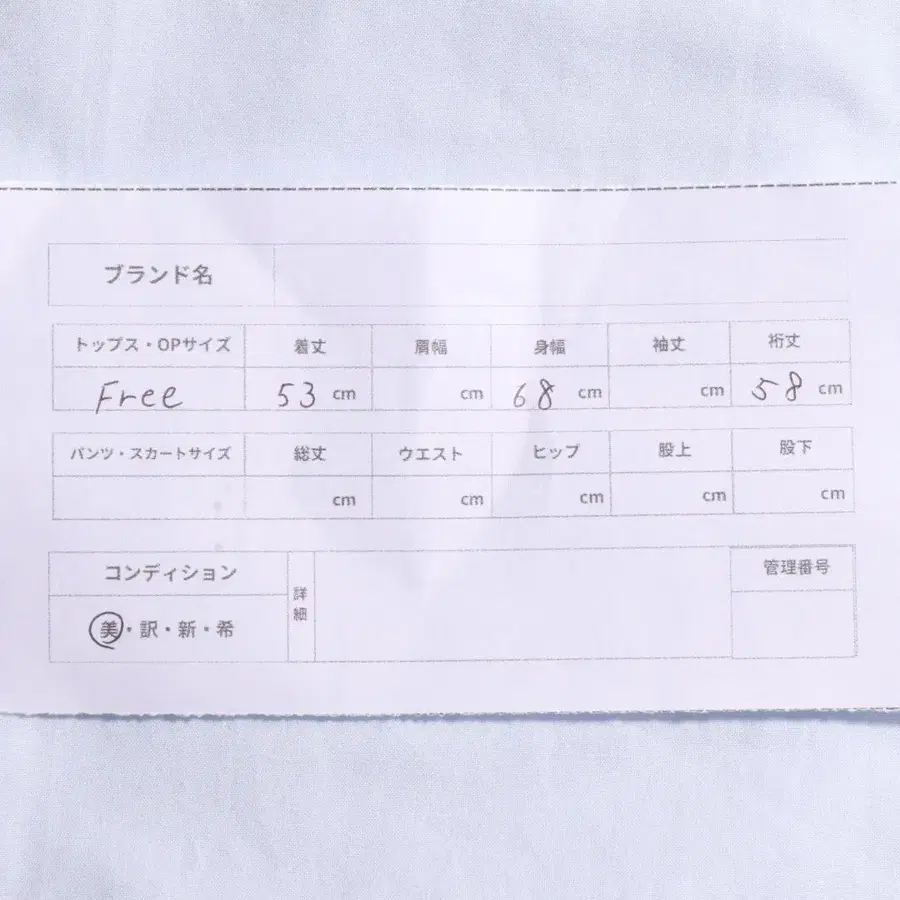 ブランド名
トップス・OPサイズ 着丈 肩幅 身幅 袖丈 裄丈
Free 53 cm cm 68 cm cm 58 cm
パンツ・スカートサイズ 総丈 ウエスト ヒップ 股上 股下
cm cm cm cm cm
コンディション 詳細 管理番号
美・訳・新・希